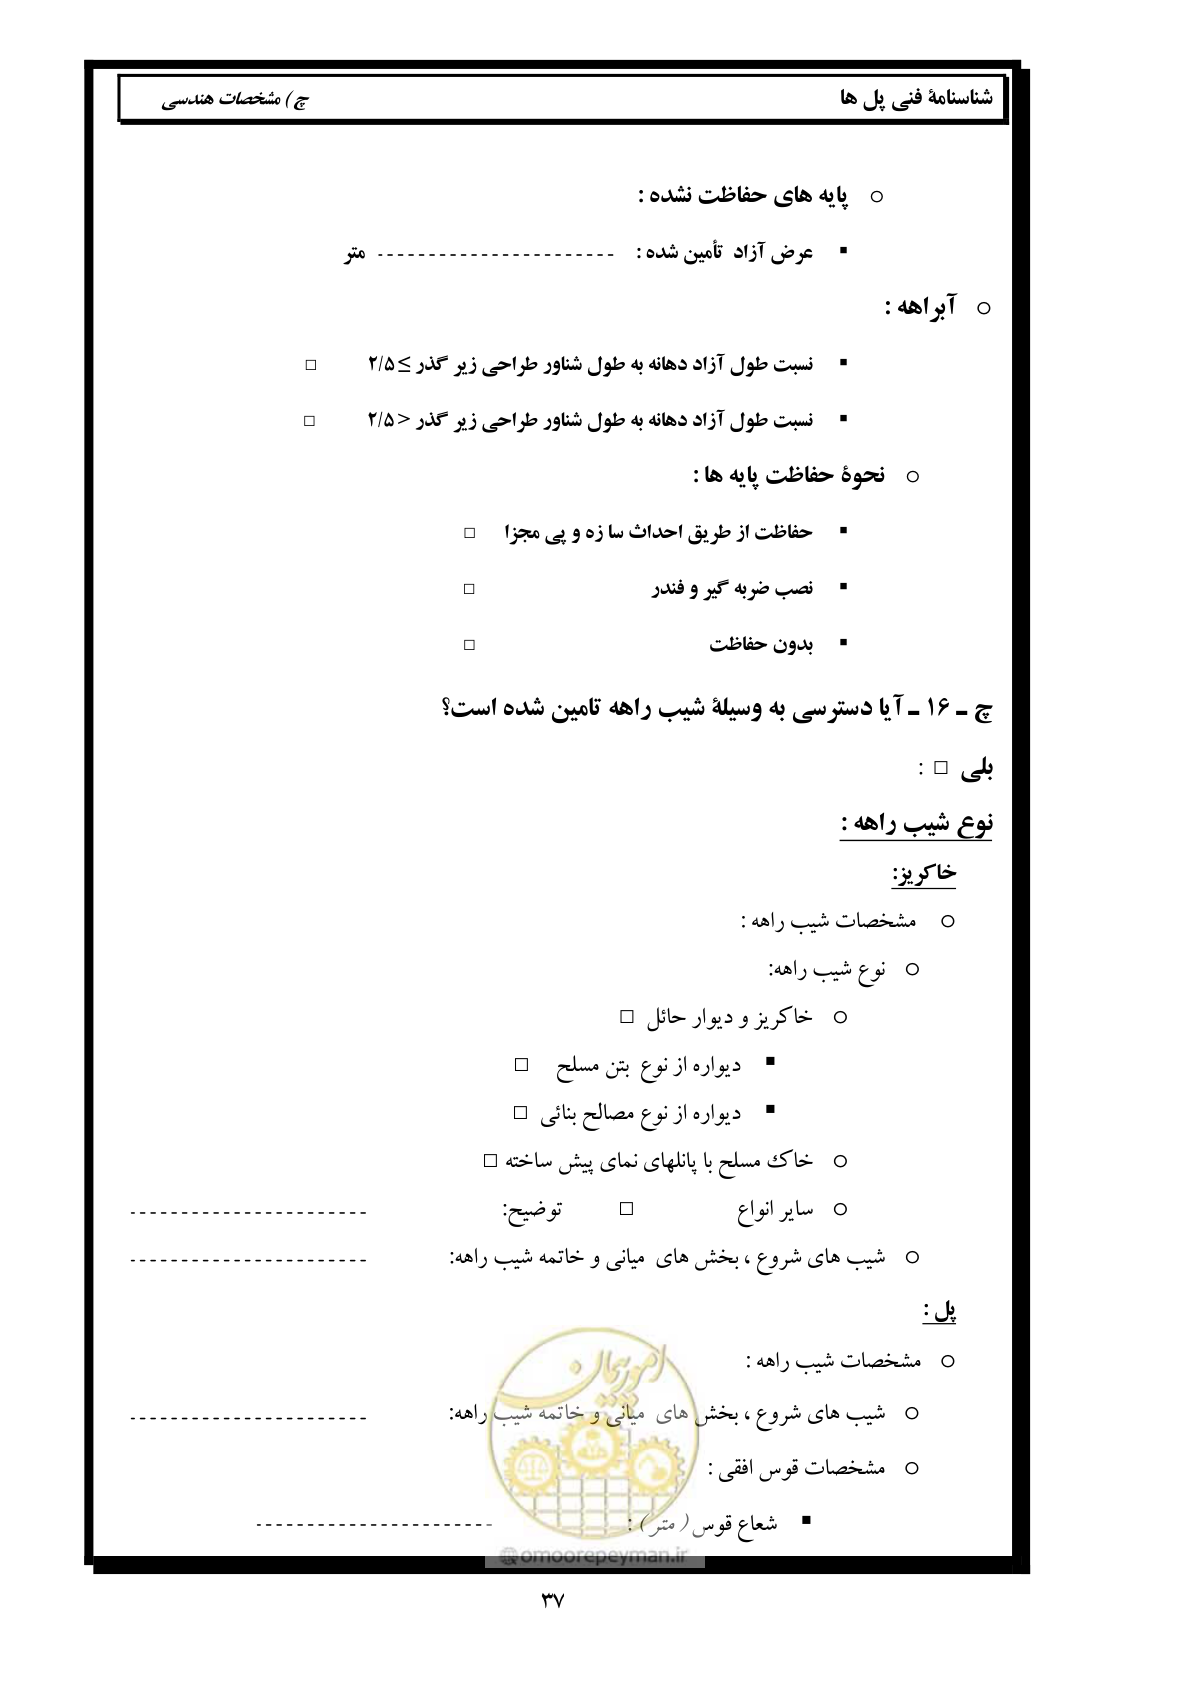 شناسنامهٔ فنی پل ها
چ) مشخصات هندسی
o پایه های حفاظت نشده :
▪ عرض آزاد تأمین شده : ----------------------- متر
o آبراهه :
▪ نسبت طول آزاد دهانه به طول شناور طراحی زیر گذر ≥ ۲/۵ □
▪ نسبت طول آزاد دهانه به طول شناور طراحی زیر گذر < ۲/۵ □
o نحوهٔ حفاظت پایه ها :
▪ حفاظت از طریق احداث سا زه و پی مجزا □
▪ نصب ضربه گیر و فندر □
▪ بدون حفاظت □
چ ـ ۱۶ ـ آیا دسترسی به وسیلهٔ شیب راهه تامین شده است؟
بلی □ :
نوع شیب راهه :
خاکریز:
o مشخصات شیب راهه :
o نوع شیب راهه:
o خاکریز و دیوار حائل □
▪ دیواره از نوع بتن مسلح □
▪ دیواره از نوع مصالح بنائی □
o خاک مسلح با پانلهای نمای پیش ساخته □
o سایر انواع □ توضیح: -----------------------
o شیب های شروع ، بخش های میانی و خاتمه شیب راهه: -----------------------
پل :
o مشخصات شیب راهه :
o شیب های شروع ، بخش های میانی و خاتمه شیب راهه: -----------------------
o مشخصات قوس افقی :
▪ شعاع قوس ( متر ) : -----------------------
امور پیمان
@omoorepeyman.ir
۳۷